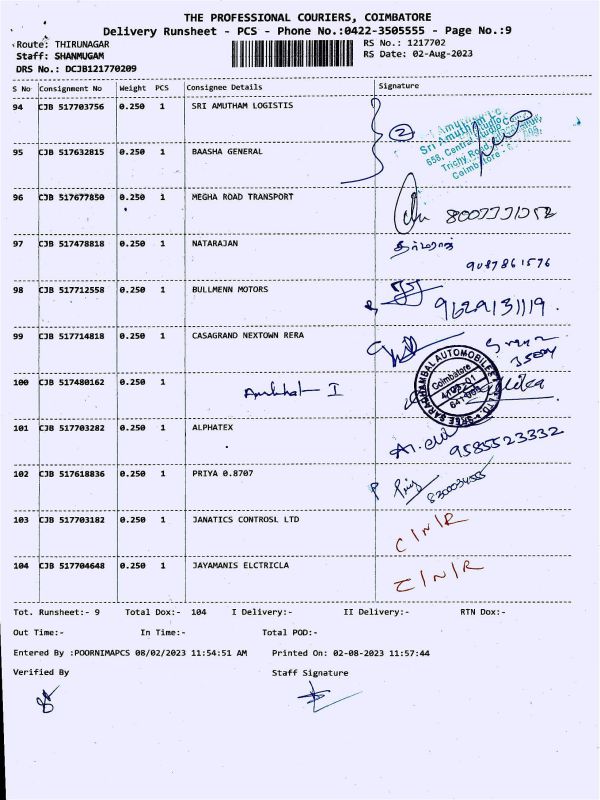 THE PROFESSIONAL COURIERS, COIMBATORE
Delivery Runsheet - PCS - Phone No.:0422-3505555 - Page No.:9
Route: THIRUNAGAR
RS No.: 1217702
Staff: SHANMUGAM
RS Date: 02-Aug-2023
DRS No.: DCJB121770209
S No Consignment No Weight PCS Consignee Details Signature
94 CJB 517703756 0.250 1 SRI AMUTHAM LOGISTIS
2
Sri Amutham
95 CJB 517632815 0.250 1 BAASHA GENERAL
96 CJB 517677850 0.250 1 MEGHA ROAD TRANSPORT
97 CJB 517478818 0.250 1 NATARAJAN
9087861576
98 CJB 517712558 0.250 1 BULLMENN MOTORS
9629131119.
99 CJB 517714818 0.250 1 CASAGRAND NEXTOWN RERA
100 CJB 517480162 0.250 1
SREE SARADHAMBAL AUTOMOBILES
Coimbatore
101 CJB 517703282 0.250 1 ALPHATEX
9585523332
102 CJB 517618836 0.250 1 PRIYA 0.8707
P Priya
103 CJB 517703182 0.250 1 JANATICS CONTROSL LTD
C/N/R
104 CJB 517704648 0.250 1 JAYAMANIS ELCTRICLA
C/N/R
Tot. Runsheet:- 9 Total Dox:- 104 I Delivery:- II Delivery:- RTN Dox:-
Out Time:- In Time:- Total POD:-
Entered By :POORNIMAPCS 08/02/2023 11:54:51 AM Printed On: 02-08-2023 11:57:44
Verified By Staff Signature